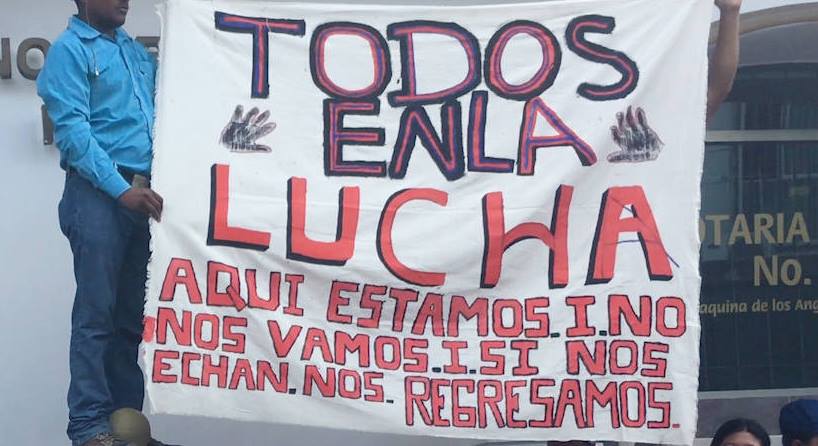 TODOS
ENLA
LUCHA
AQUI ESTAMOS.I.NO
NOS VAMOS.I.SI NOS
ECHAN.NOS.REGRESAMOS.
OTARIA
No.
aquina de los Ang